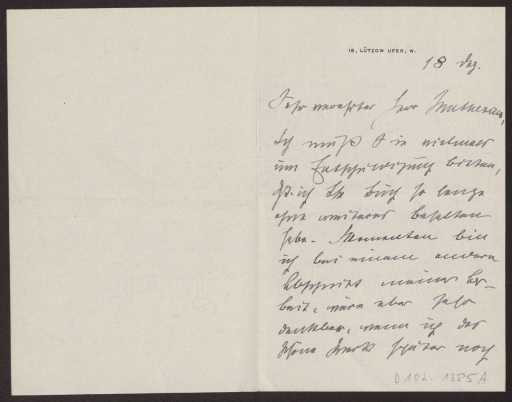 18, LÜTZOW UFER, W.
18 Dez.
Sehr verehrter Herr Muthesius,
Ich muß Sie vielmals
um Entschuldigung bitten,
daß ich Ihr Buch so lange
ohne weiteres behalten
habe. Momentan bin
ich bei einem andern
Abschnitt meiner Ar-
beit, wäre aber sehr
dankbar, wenn ich das
schöne Werk später noch
D 102-1385 A